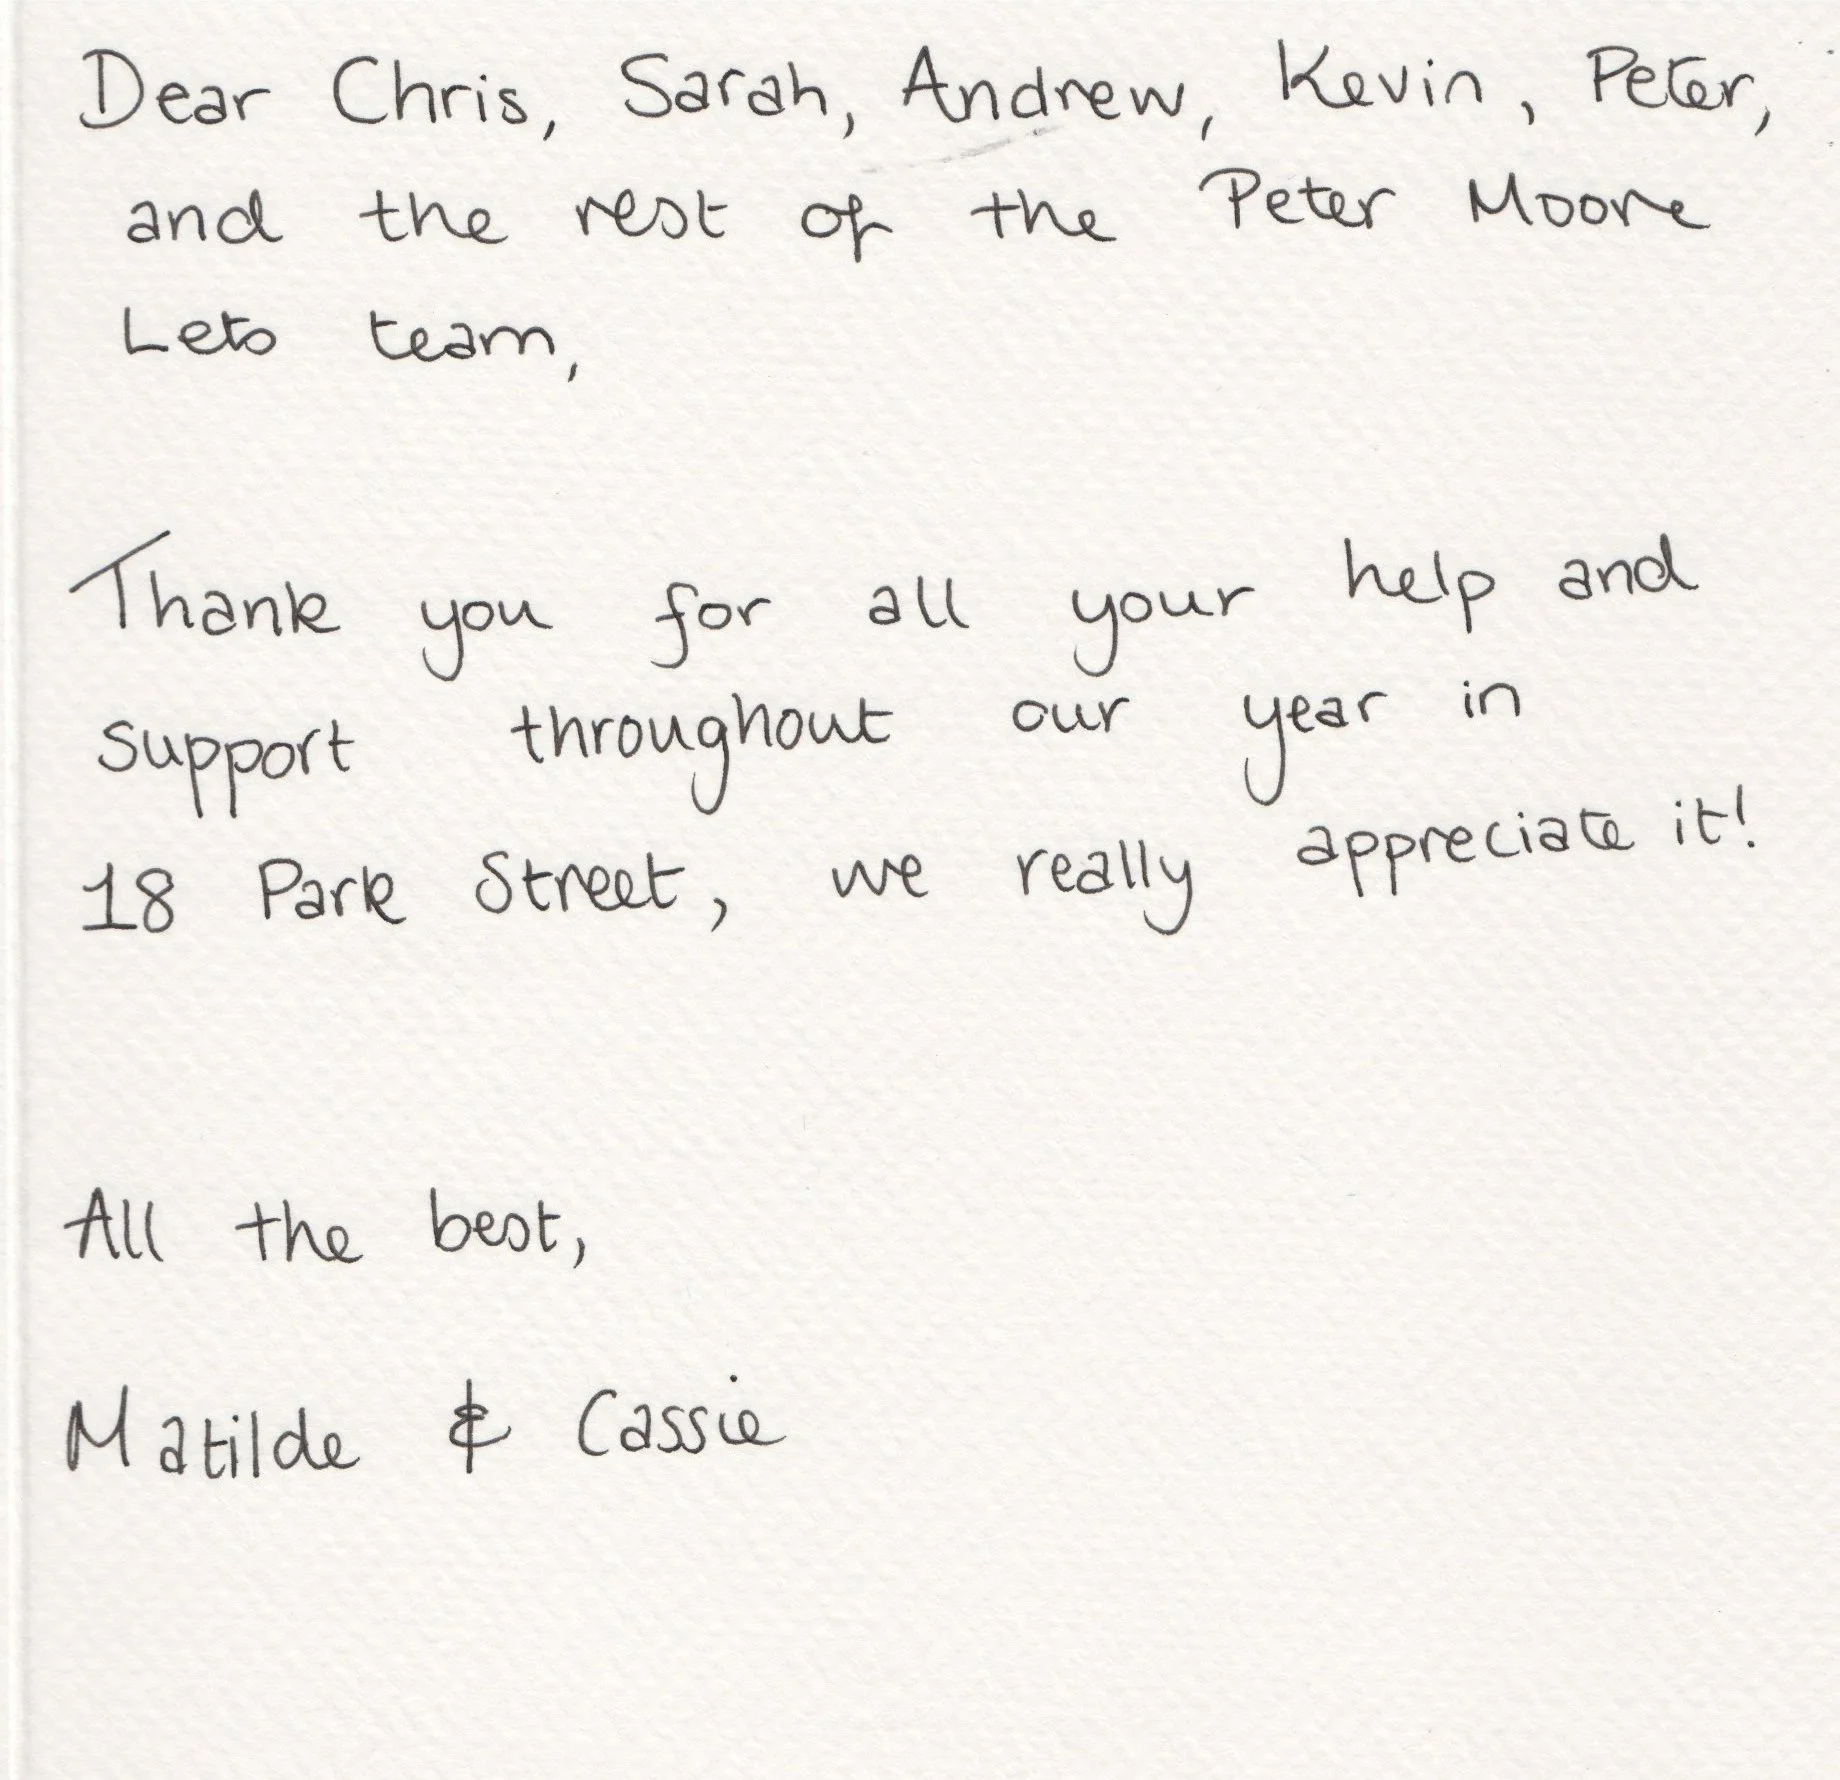 Dear Chris, Sarah, Andrew, Kevin, Peter,
and the rest of the Peter Moore
Lets team,
Thank you for all your help and
support throughout our year in
18 Park Street, we really appreciate it!
All the best,
Matilde & Cassie